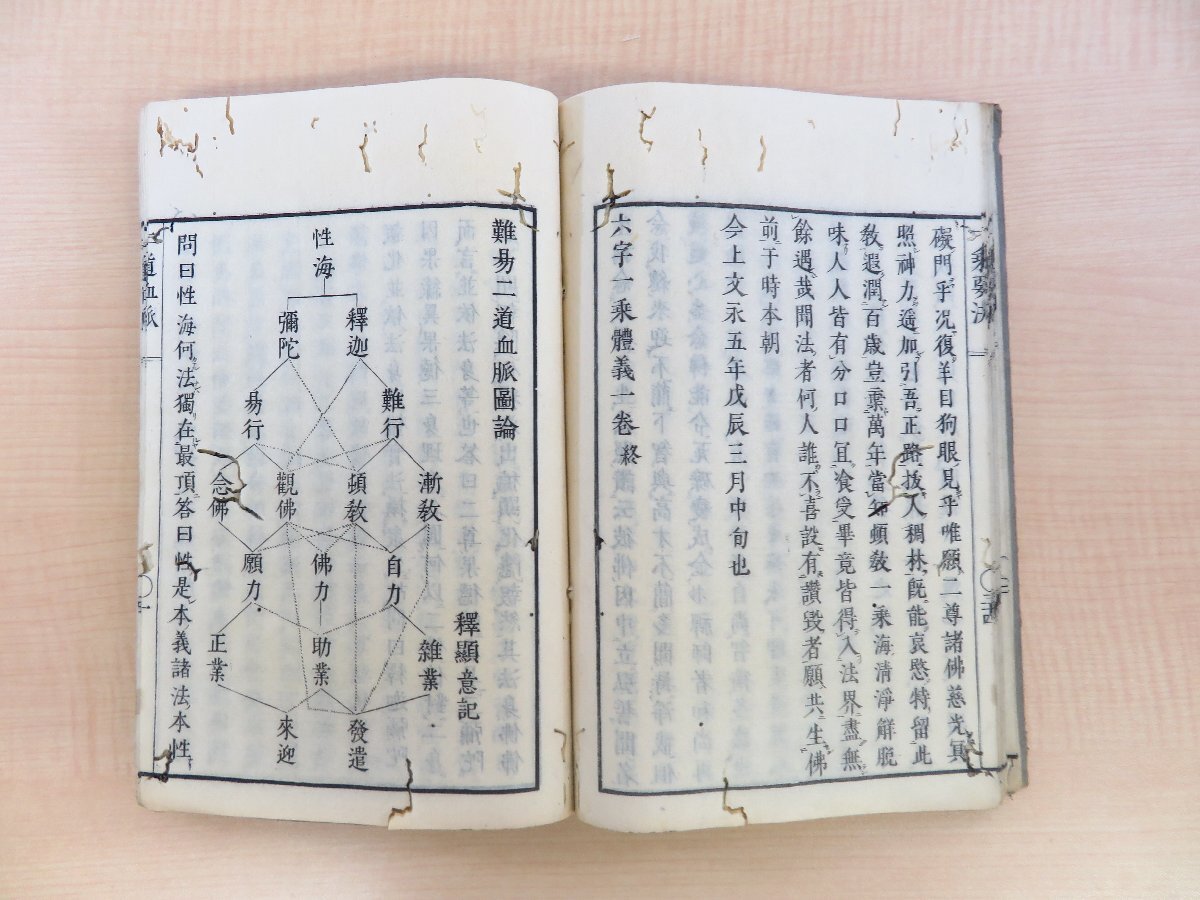 礙門乎况復羊目狗眼見乎唯願二尊諸佛慈光冥
照神力遥加引吾正路拔人稠林既能哀愍特留此
教遐潤百歲豈棄萬年當知頓教一乘海清淨解脫
味人人皆有分口口宜飡受畢竟皆得入法界盡無
餘遇哉聞法者何人誰不喜設有讚毀者願共生佛
前于時本朝
今上文永五年戊辰三月中旬也
六字一乘體義一卷終
難易二道血脈圖論
釋顯意記
性海
釋迦
彌陀
難行
易行
漸教
頓教
觀佛
念佛
自力
佛力
願力
雜業
助業
正業
發遣
來迎
問曰性海何法獨在最頂答曰性是本義諸法本性
二道血脈